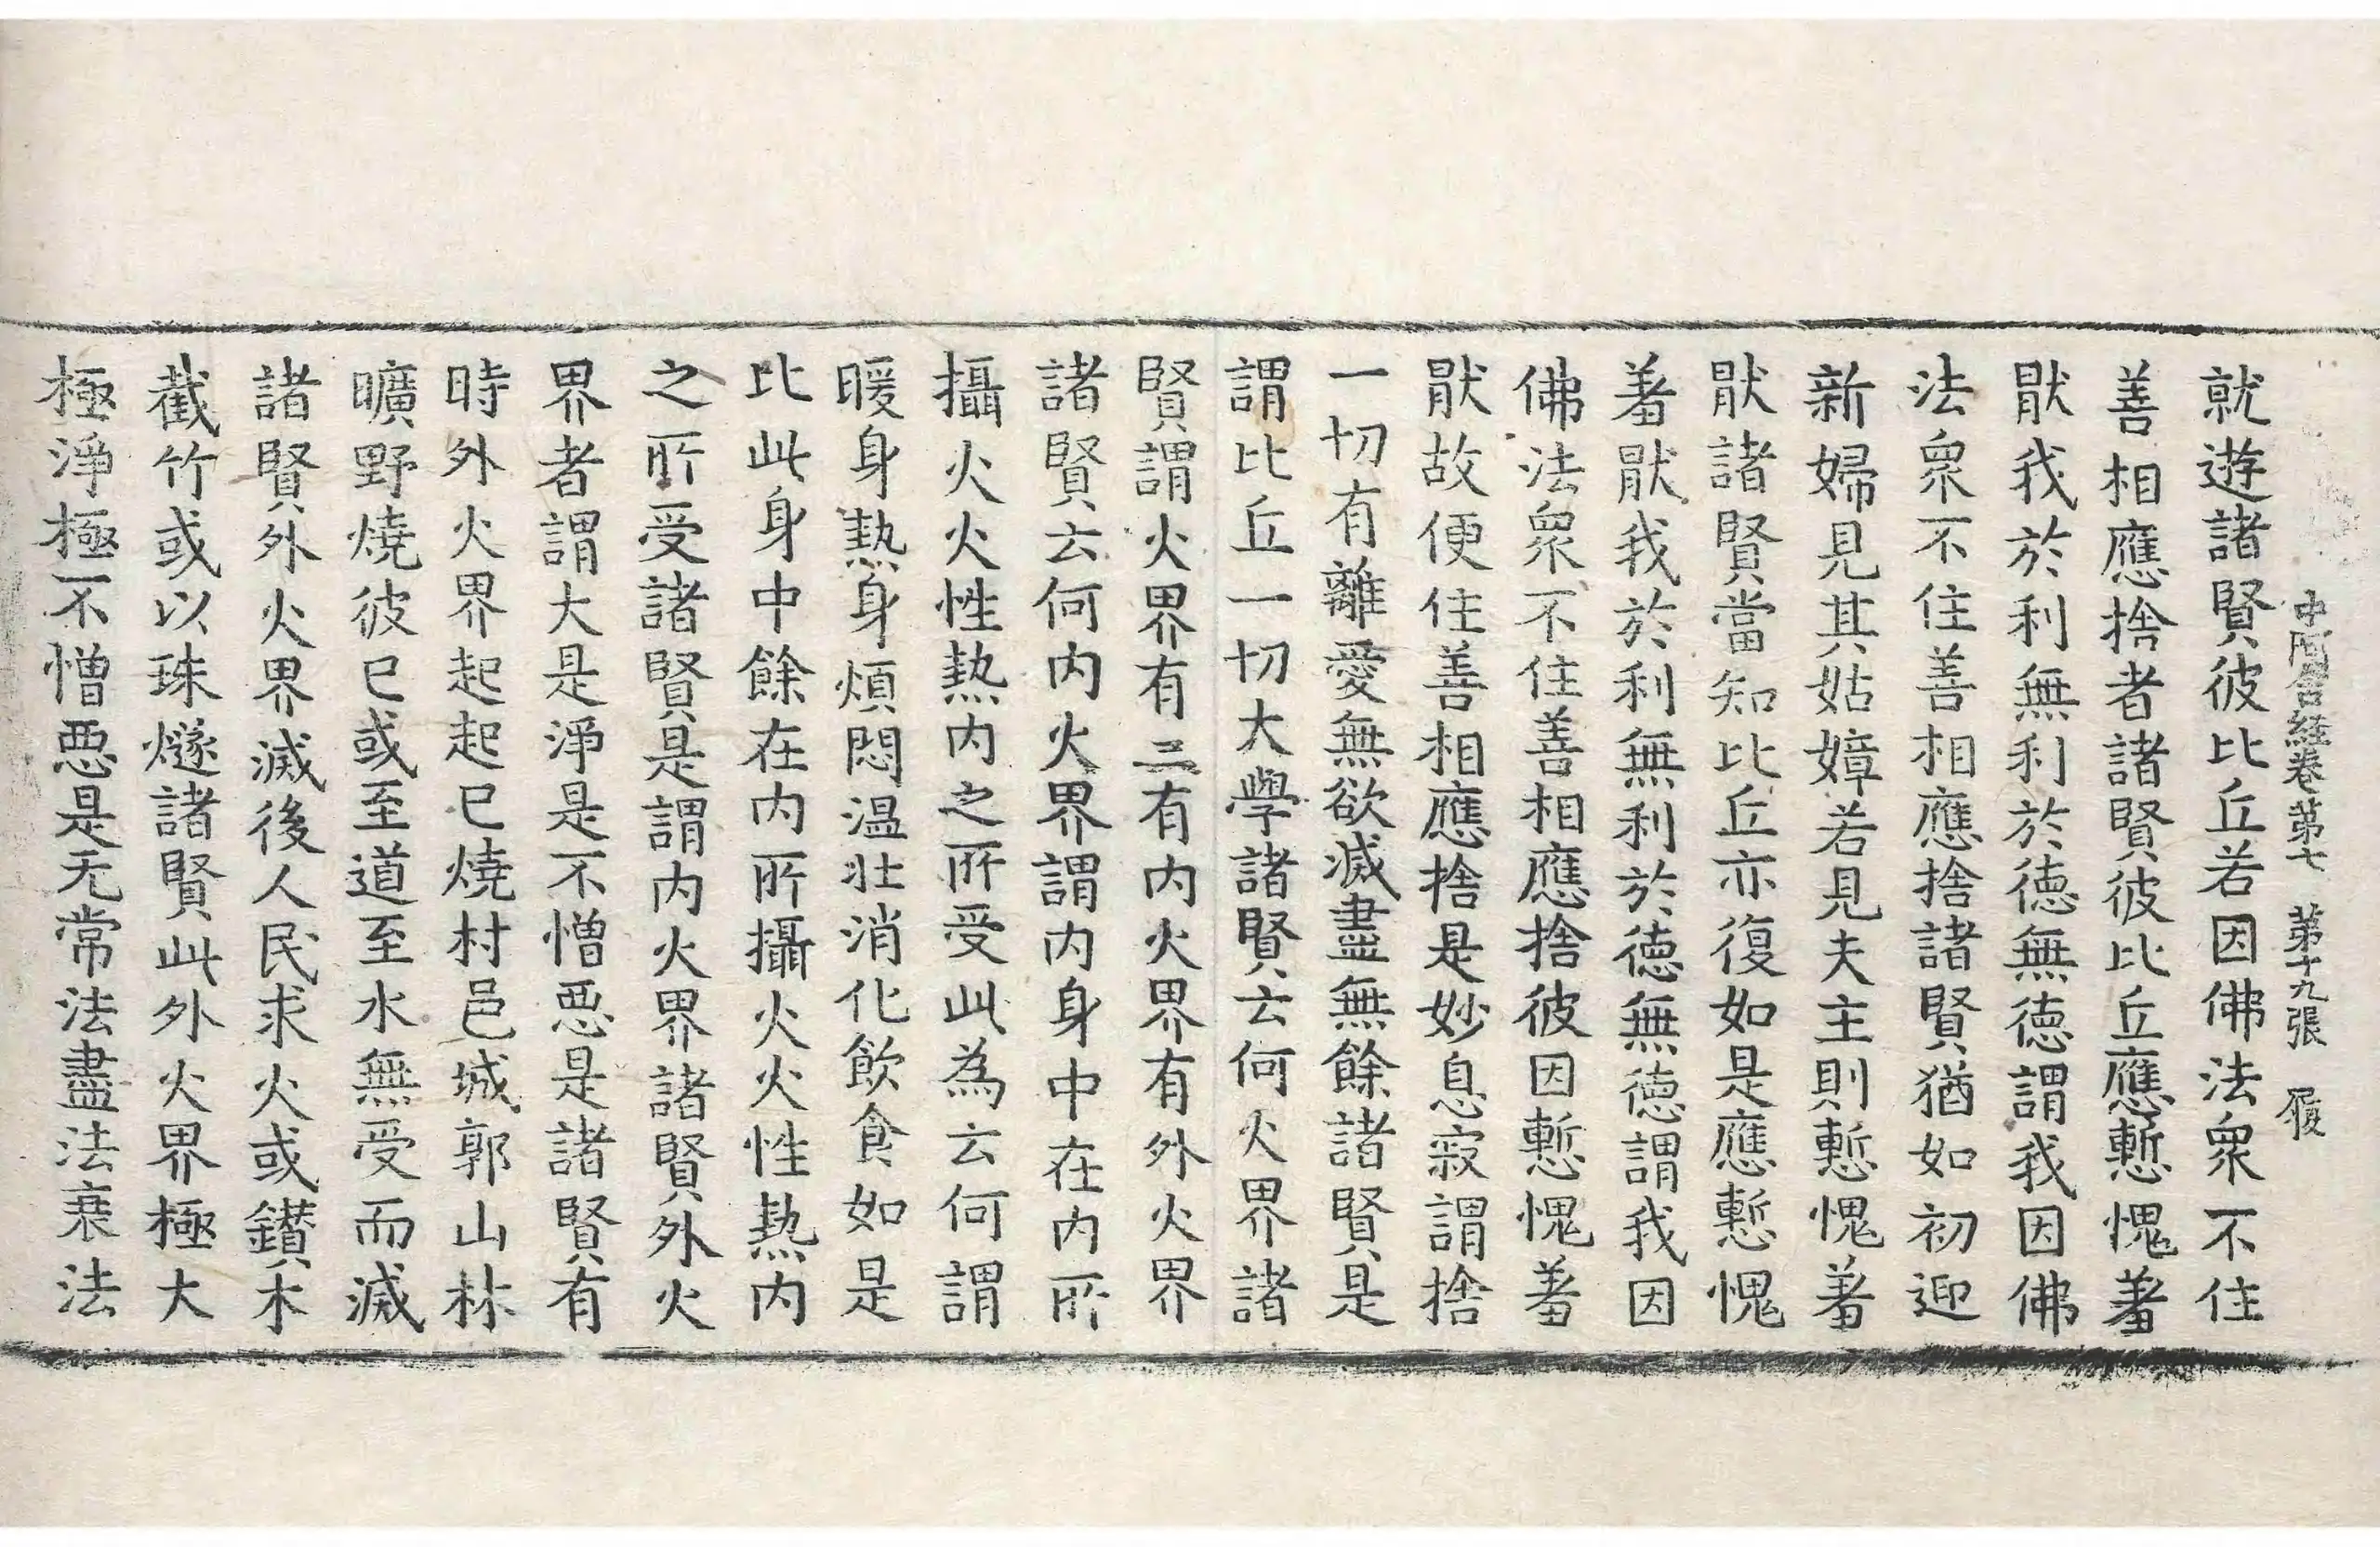 中阿含經卷第七 第十九張 履
就遊諸賢彼比丘若因佛法衆不住
善相應捨者諸賢彼比丘應慙愧羞
猒我於利無利於德無德謂我因佛
法衆不住善相應捨諸賢猶如初迎
新婦見其姑嫜若見夫主則慙愧羞
猒諸賢當知比丘亦復如是應慙愧
羞猒我於利無利於德無德謂我因
佛法衆不住善相應捨彼因慙愧羞
猒故便住善相應捨是妙息寂謂捨
一切有離愛無欲滅盡無餘諸賢是
謂比丘一切大學諸賢云何火界諸
賢謂火界有二有內火界有外火界
諸賢云何內火界謂內身中在內所
攝火火性熱內之所受此為云何謂
暖身熱身煩悶溫壯消化飲食如是
比此身中餘在內所攝火火性熱內
之所受諸賢是謂內火界諸賢外火
界者謂大是淨是不憎惡是諸賢有
時外火界起起已燒村邑城郭山林
曠野燒彼已或至道至水無受而滅
諸賢外火界滅後人民求火或鑚木
截竹或以珠燧諸賢此外火界極大
極淨極不憎惡是无常法盡法衰法